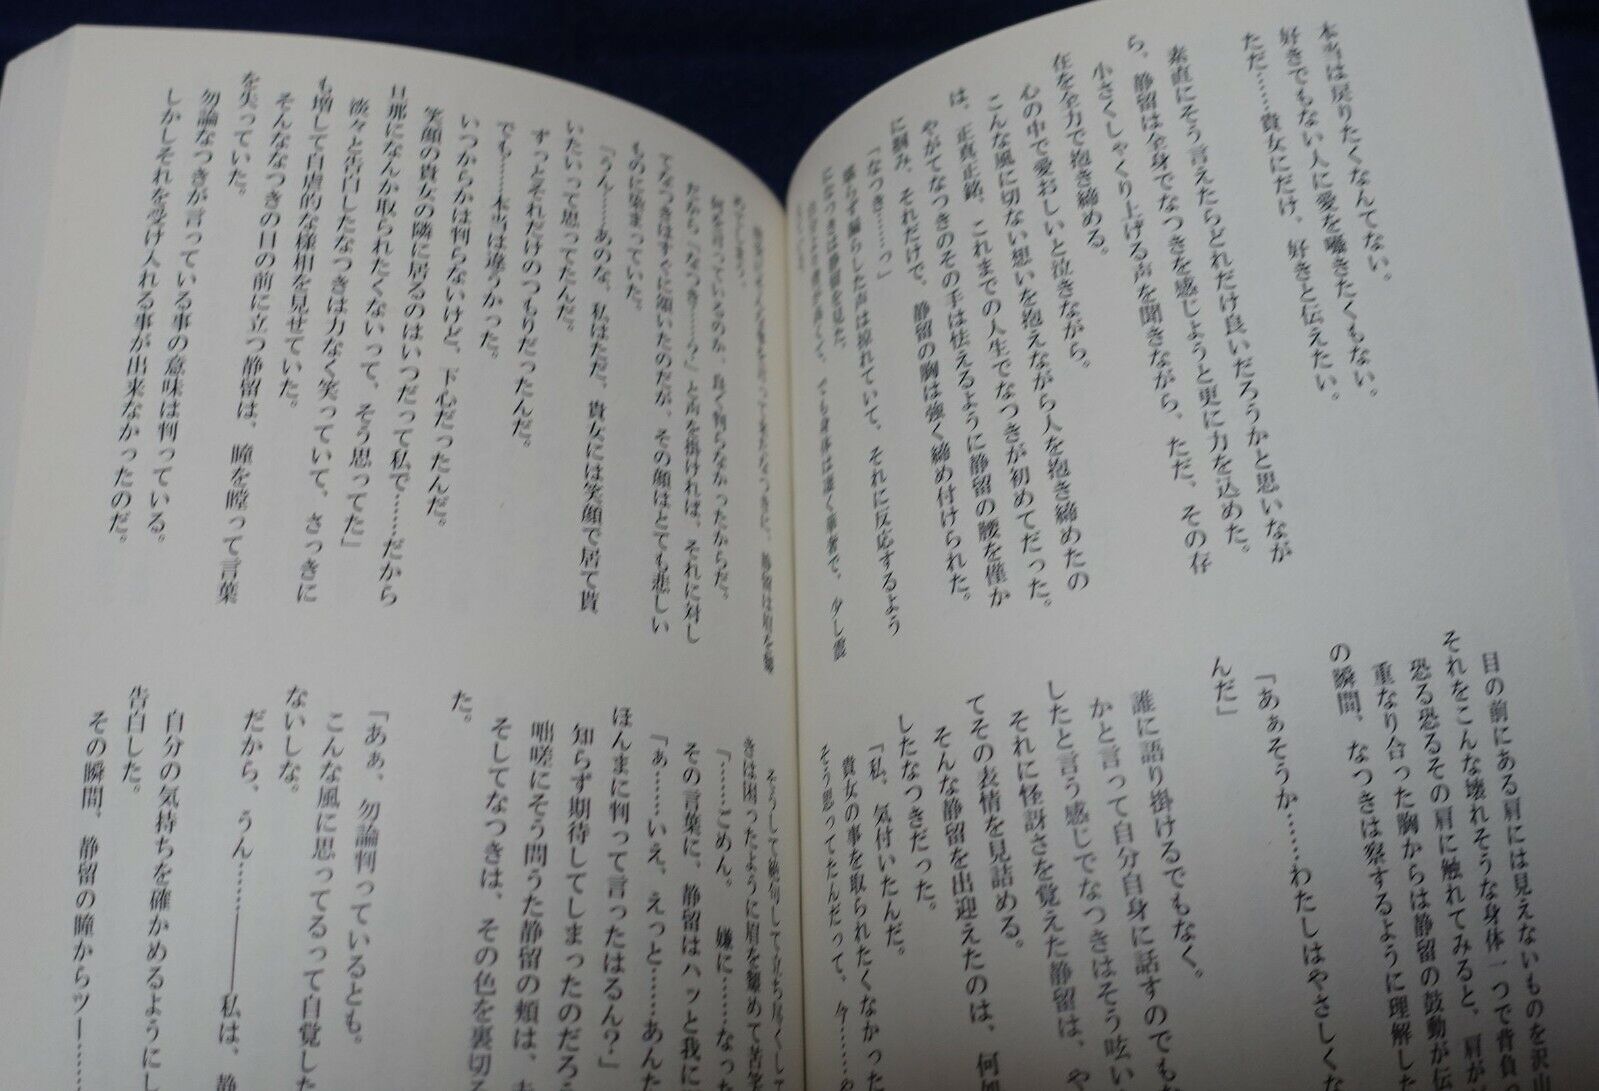 本当は戻りたくなんてない。
好きでもない人に愛を囁きたくもない。
ただ……貴女にだけ、好きと伝えたい。
素直にそう言えたらどれだけ良いだろうかと思いなが
ら、静留は全身でなつきを感じようと更に力を込めた。
小さくしゃくり上げる声を聞きながら、ただ、その存
在を全力で抱き締める。
心の中で愛おしいと泣きながら。
こんな風に切ない想いを抱えながら人を抱き締めたの
は、正真正銘、これまでの人生でなつきが初めてだった。
やがてなつきのその手は怯えるように静留の腰を僅か
に掴み、それだけで、静留の胸は強く締め付けられた。
「なつき……っ」
漏らした声は掠れていて、それに反応するよう
になつきは静留を見た。
でも身体は凄く華奢で、少し震
目の前にある肩には見えないものを沢山
それをこんな壊れそうな身体一つで背負
恐る恐るその肩に触れてみると、肩が
重なり合った胸からは静留の鼓動が伝
の瞬間、なつきは察するように理解した
「あぁそうか……わたしはやさしくな
んだ」
誰に語り掛けるでもなく。
かと言って自分自身に話すのでもな
したと言う感じでなつきはそう呟い
それに怪訝さを覚えた静留は、や
てその表情を見詰める。
そんな静留を出迎えたのは、何処
したなつきだった。
「私、気付いたんだ。
貴女の事を取られたくなかった
そう思ってたんだって、今……や
静留は眉を顰
めてしまい。
何を言っているのか、良く判らなかったからだ。
だから「なつき……?」と声を掛ければ、それに対し
てなつきはすぐに頷いたのだが、その顔はとても悲しい
ものに染まっていた。
「うん……あのな、私はただ、貴女には笑顔で居て貰
いたいって思ってたんだ。
ずっとそれだけのつもりだったんだ。
でも……本当は違うかった。
いつからかは判らないけど、下心だったんだ。
笑顔の貴女の隣に居るのはいつだって私で……だから
旦那になんか取られたくないって、そう思ってた」
淡々と告白したなつきは力なく笑っていて、さっきに
も増して自虐的な様相を見せていた。
そんななつきの目の前に立つ静留は、瞳を瞠って言葉
を失っていた。
勿論なつきが言っている事の意味は判っている。
しかしそれを受け入れる事が出来なかったのだ。
そうして絶句して立ち尽くして
きは困ったように眉を顰めて苦笑
「……ごめん。　嫌に……なった
その言葉に、静留はハッと我に
「ぁ……いえ、えっと……あんた
ほんまに判って言ったはるん?」
知らず期待してしまったのだろう
咄嗟にそう問うた静留の頬は、
そしてなつきは、その色を裏切る
た。
「あぁ、勿論判っているとも。
こんな風に思ってるって自覚した
ないしな。
だから、うん……――私は、静
自分の気持ちを確かめるようにし
告白した。
その瞬間、静留の瞳からツー……